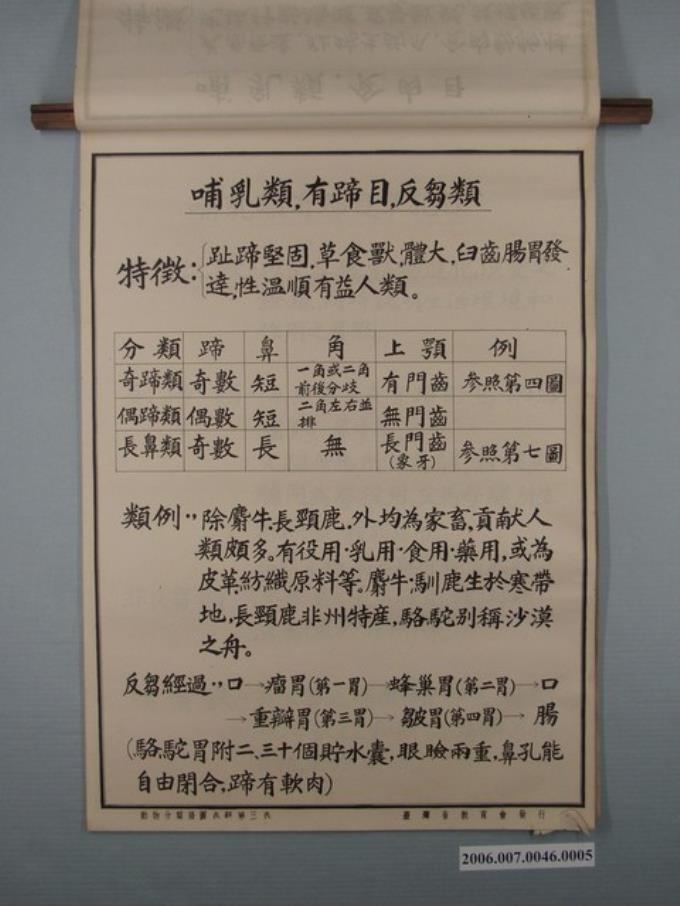 哺乳類,有蹄目,反芻類
特徵:趾蹄堅固,草食獸,體大,臼齒腸胃發
達,性溫順有益人類。
分類 蹄 鼻 角 上顎 例
奇蹄類 奇數 短 一角或二角前後分歧 有門齒 參照第四圖
偶蹄類 偶數 短 二角左右並排 無門齒
長鼻類 奇數 長 無 長門齒(象牙) 參照第七圖
類例,,除麝牛,長頸鹿,外均為家畜,貢献人
類頗多。有役用·乳用·食用·藥用,或為
皮革,紡織原料等。麝牛,馴鹿生於寒帶
地,長頸鹿非州特產,駱駝別稱沙漠
之舟。
反芻經過,,口→瘤胃(第一胃)→蜂巢胃(第二胃)→口
→重瓣胃(第三胃)→皺胃(第四胃)→腸
(駱駝胃附二、三十個貯水囊,眼瞼兩重,鼻孔能
自由閉合,蹄有軟肉)
臺灣省教育會發行
2006.007.0046.0005